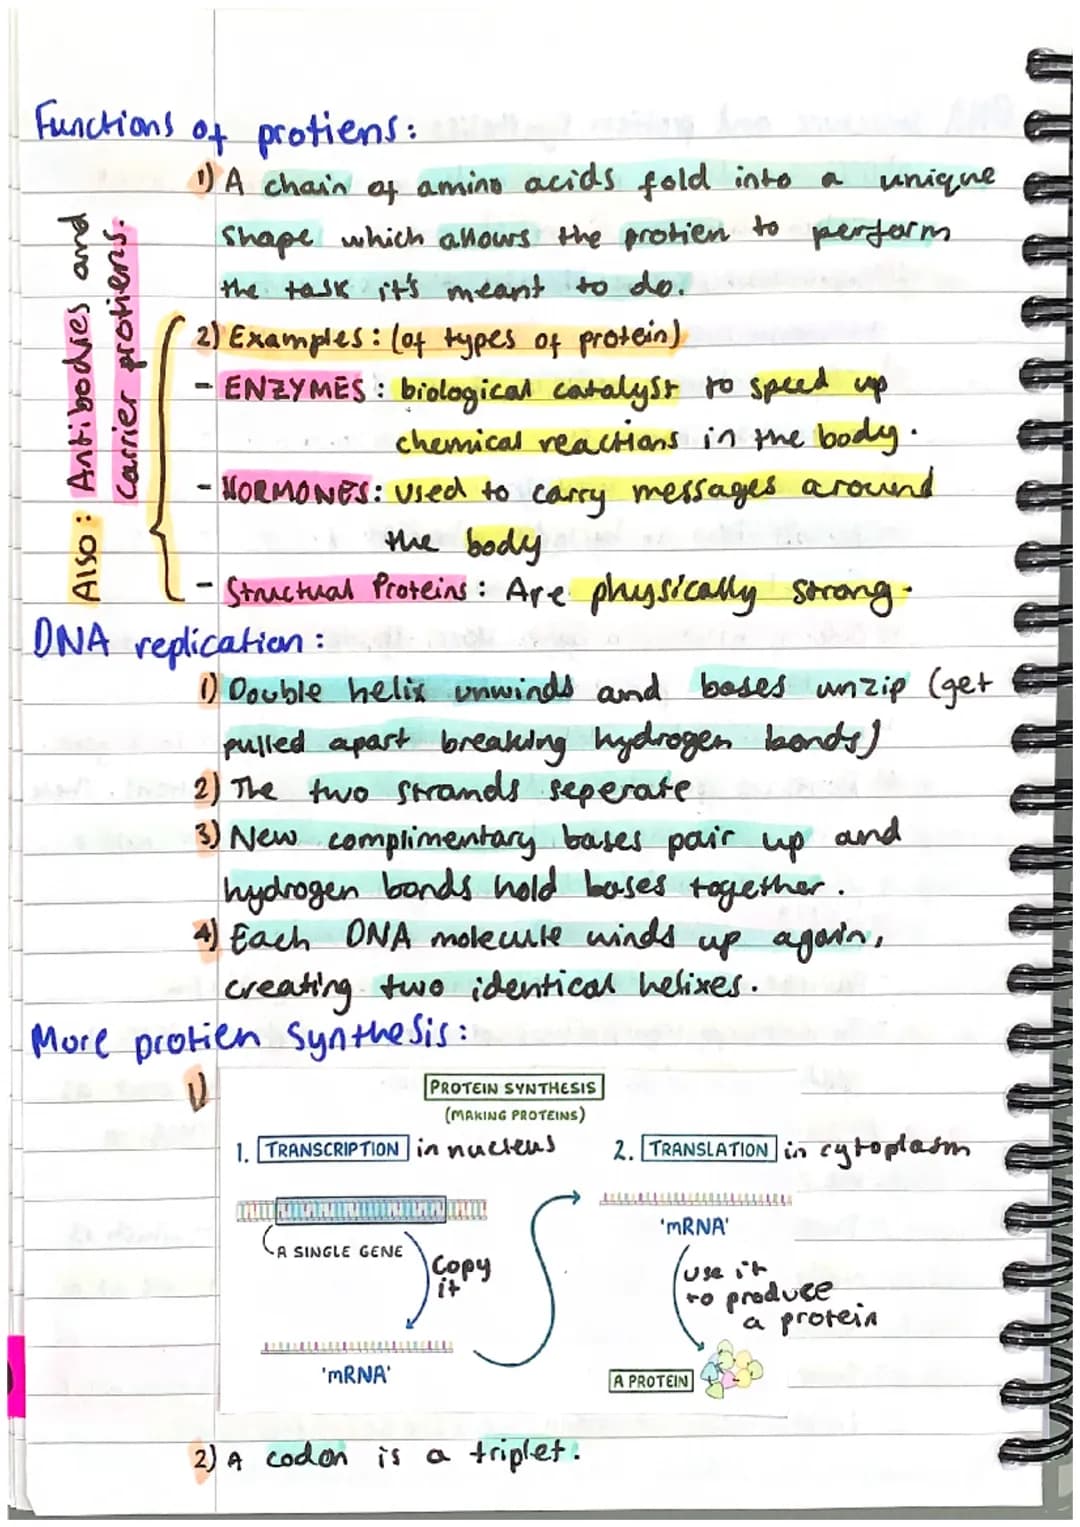 Functions of protiens:
1) A chain of amino acids fold into a unique
shape which allows the protien to perform
the task it's meant to do.
Also: Antibodies and
carrier protiens.
2) Examples: (of types of protein)
- ENZYMES: biological catalyst to speed up
chemical reactions in the body.
- HORMONES: used to carry messages around
the body
- Structual Proteins: Are physically strong.
DNA replication:
1) Double helix unwinds and bases unzip (get
pulled apart breaking hydrogen bonds)
2) The two strands seperate
3) New complimentary bases pair up and
hydrogen bonds hold bases together.
4) Each DNA molecule winds up again,
creating two identical helixes.
More protien Synthesis:
1)
PROTEIN SYNTHESIS
(MAKING PROTEINS)
1. TRANSCRIPTION in nucleus
A SINGLE GENE
Copy
it
'mRNA'
2. TRANSLATION in cytoplasm
'mRNA'
use it
to produce
a protein
A PROTEIN
2) A codon is a triplet.